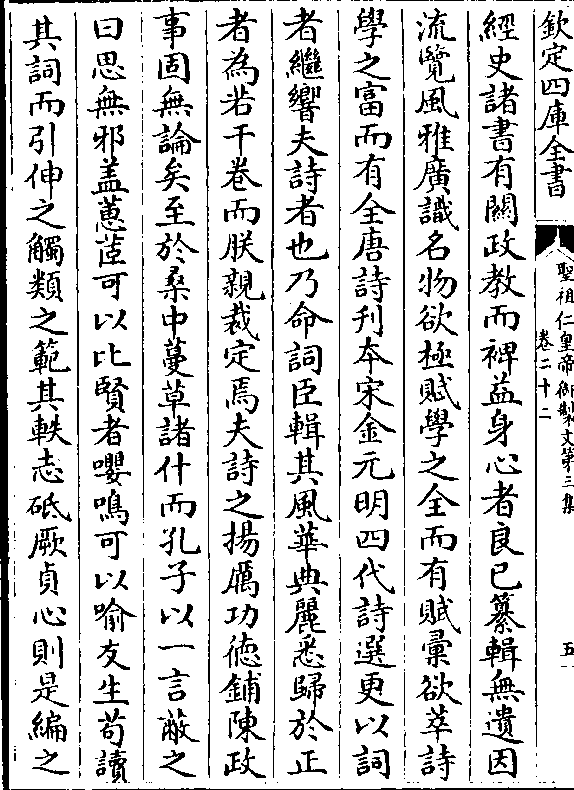 欽定四庫全書
聖祖仁皇帝御製文第三集
卷二十二
五
經史諸書有闗政教而裨益身心者良已纂輯無遺因
流覽風雅廣識名物欲極賦學之全而有賦彚欲萃詩
學之富而有全唐詩刋本宋金元明四代詩選更以詞
者繼響夫詩者也乃命詞臣輯其風華典麗悉歸於正
者為若干卷而朕親裁定焉夫詩之揚厲功徳鋪陳政
事固無論矣至於桑中蔓草諸什而孔子以一言蔽之
曰思無邪盖蕙茝可以比賢者嚶鳴可以喻友生苟讀
其詞而引伸之觸類之範其軼志砥厥貞心則是編之